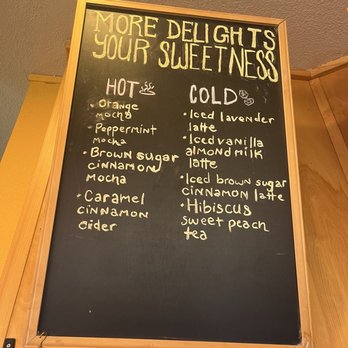 MORE DELIGHTS
YOUR SWEETNESS
HOT
• Orange
mocha
• Peppermint
mocha
• Brown sugar
cinnamon
mocha
• Caramel
cinnamon
cider
COLD
• Iced lavender
latte
• Iced vanilla
almond milk
latte
• Iced brown sugar
cinnamon latte
• Hibiscus
sweet peach
tea